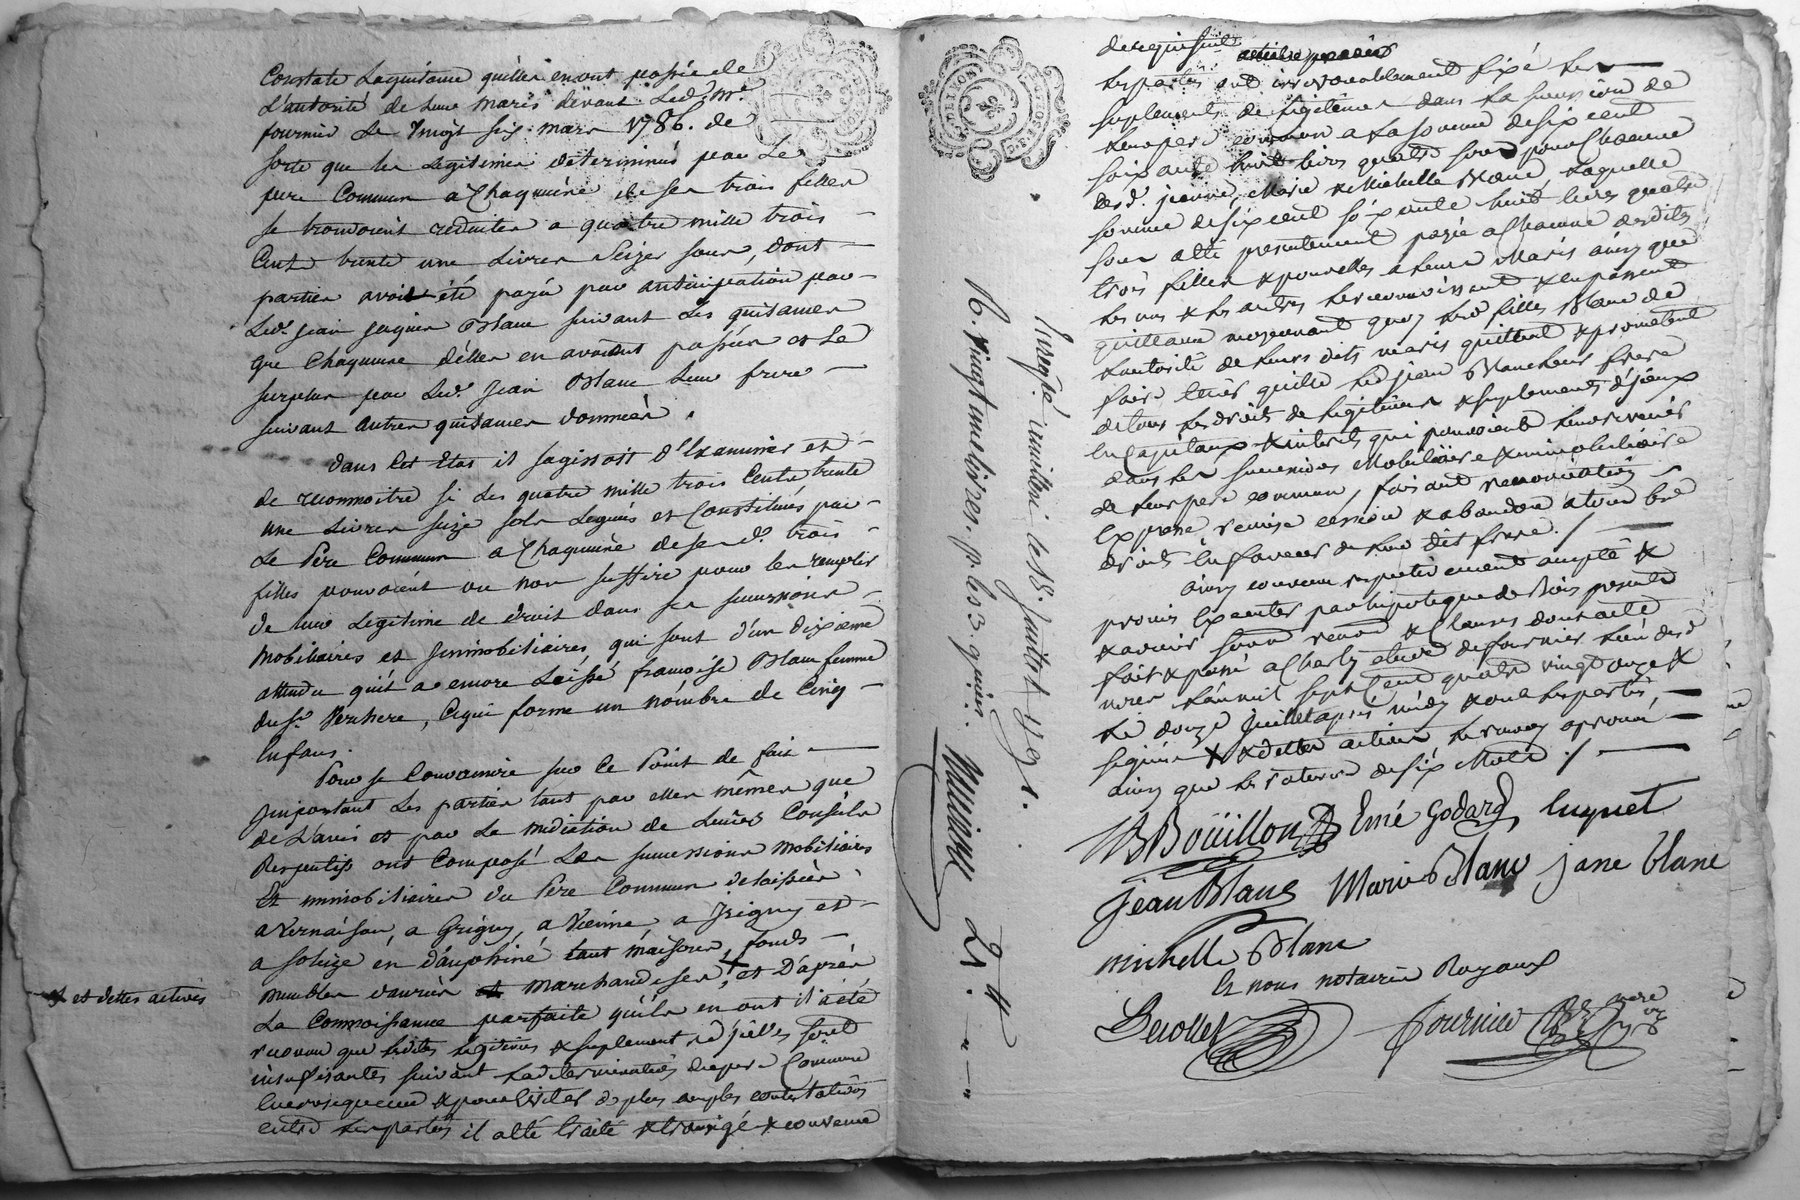 Constate la quitance qu'elles en ont passée de
L'autorité de leur maris devant Led. Me
fournier Le vingt six mars 1786. de
sorte que les Legitimes determinés par Le
pere Commun a Chaqu'une de ses trois filles
se trouvoient reduites a quatre mille trois
Cents trente une Livres Seize sous, dont
partie avoit été payée par anticipation par
Led. Jean Blanc suivant Les quitances
que Chaqu'une d'elles en avoient passées et Le
surplus par Led. Jean Blanc Leur frere
suivant autres quitances données.
Dans Cet Etat il s'agissoit d'Examiner et
de reconnoitre si Les quatre mille trois Cents trente
une Livres seize sols Legués et Constitués par
Le Pere Commun a Chaqu'une de ses d. trois
filles pouvoient ou non suffire pour les remplir
de leur Legitime de droit dans ses successions
Mobiliaires et Immobiliaires, qui sont d'un dixieme
attendu qu'il a encore Laissé françoise Blanc femme
du Sr. Perchere, Ce qui forme un nombre de Cinq
Enfans.
Pour se Convaincre sur Ce Point de fait
Important Les parties tant par elles mêmes que
de L'avis et par La médiation de Leurs Conseils
Respectifs ont Composé Les successions Mobiliaires
Et immobiliaires du Pere Commun delaissées
a Vernaison, a Grigny, a Vienne, a Irigny et
a Solaize en Dauphiné tant maisons, fonds
meubles danrées et marchandises, et D'après
x et dettes actives
La Connoissance parfaite qu'ils en ont il a été
reconnu que lesdites Legitimes & suplement d'icelles sont
insufisantes suivant la determination du pere Commun
En consequence & pour Eviter de plus amples contestations
entre les parties il a été traité & transigé & convenu
de ce qui suit
les parties ont irrevocablement fixé les
suplements de legitimes dans la succession de
leur pere commun a la somme de six cent
soixante huit livres quatre sous pour Chacune
des d. jeanne, Marie & Michelle Blanc Laquelle
somme de six cent soixante huit livres quatre
sous a été presentement payée a Chacune desdites
trois filles & pour elles a leurs Maris ainsy que
les uns & les autres le reconnoissent & en passent
quittance moyennant quoy les d. filles Blanc de
l'autorité de leurs dits maris quittent & promettent
faire tenir quitte led jean Blanc leur frere
de tous les droits de legitimes & suplements d'iceux
en Capitaux & interets qui pouvoient leur revenir
dans les successions Mobiliaire & immobiliaire
de leur pere commun, faisant renonciation
Expresse remise cession & abandon a tous les
droits En faveur de leur dit frere. /
ainsy convenu respectivement accepté &
promis Executer par hipotheque de Biens presents
& avenir sous renon & Clauses dont acte
fait & passé a Charly etude de fournier l'un des d
nores L'an mil sept Cent quatre vingt onze &
Le douze juillet apres midy & ont les parties
signé & x dettes actives le renvoy approuvé
ainsy que les ratures de six Mots ./.
B Boüillon Emé Godard luquet
Jean Blanc Marie Blanc jane blanc
michelle Blanc
Et nous notaires Royaux
Fournier
Enregtré. a milleri le 18. Juillet 1791.
R. vingt une livres
21.